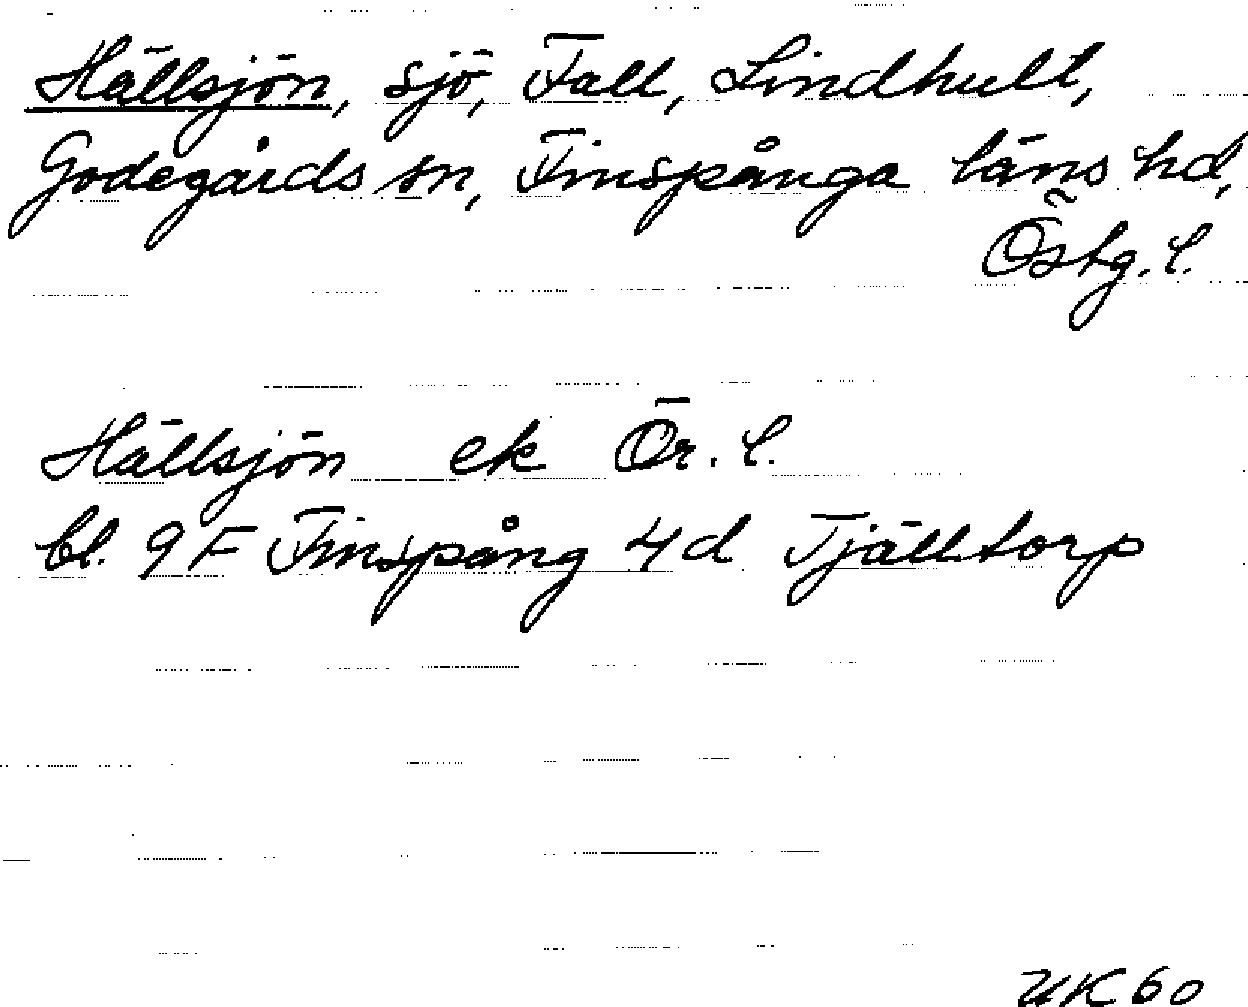 Hällsjön, sjö, Fall, Lindhult,
Godegårds sn, Finspånga läns hd,
Östg. l.
Hällsjön ek Ör. l.
bl. 9 F Finspång 4 d Tjälltorp
UK 60